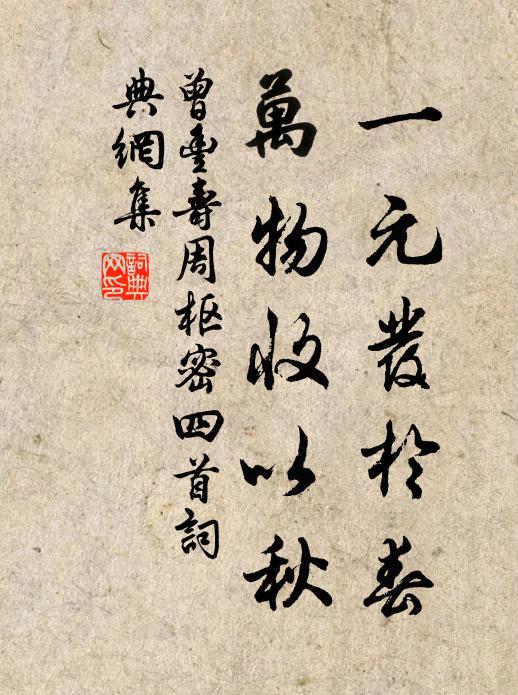 一元發於春
萬物收以秋
曾豐壽周枢密四首詞
典網集
詞典
网印